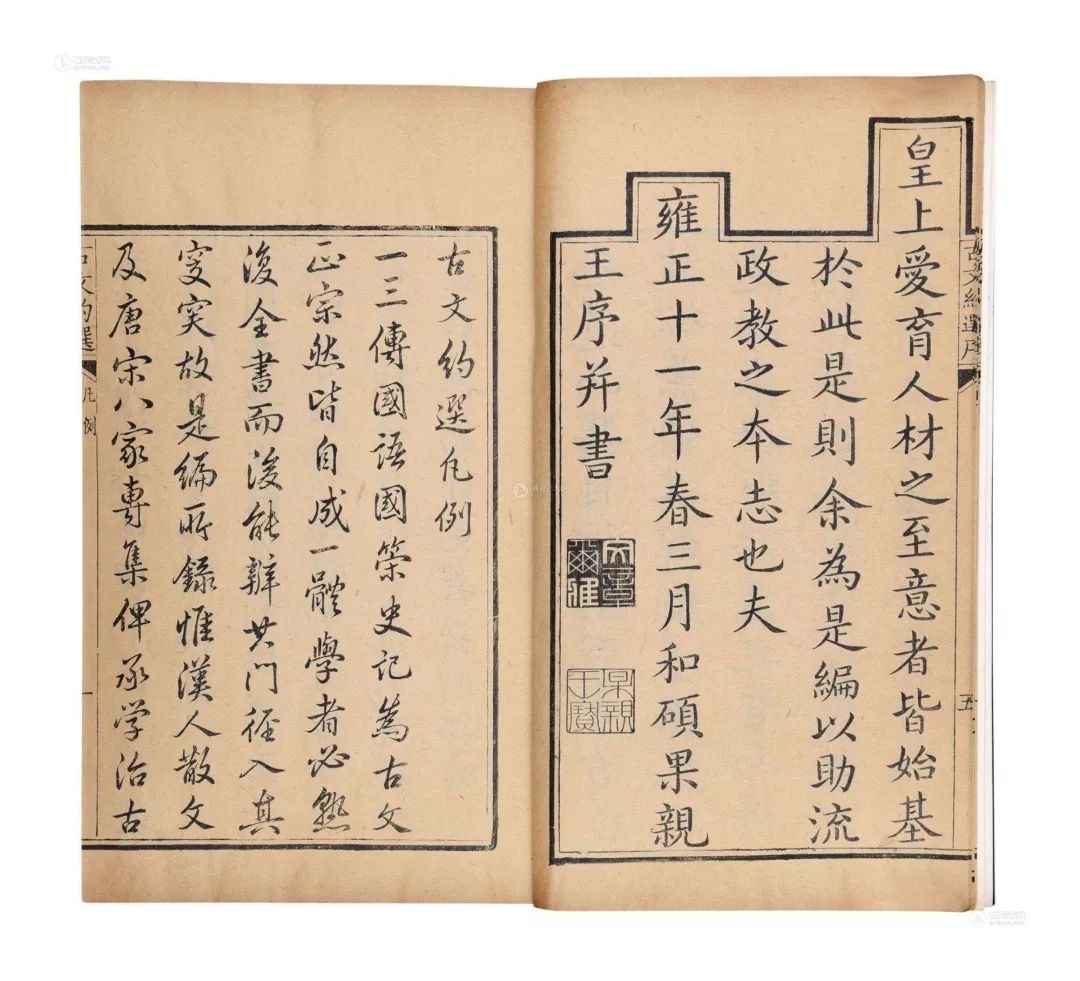 皇上愛育人材之至意者皆始基
於此是則余為是編以助流
政教之本志也夫
雍正十一年春三月和碩果親
王序并書
文章爾雅
果親王寶
古文約選序
五
古文約選凡例
一三傳國語國策史記為古文
正宗然皆自成一體學者必熟
復全書而後能辨其門徑入其
窔突故是編所錄惟漢人散文
及唐宋八家專集俾承學治古
古文約選
凡例
一